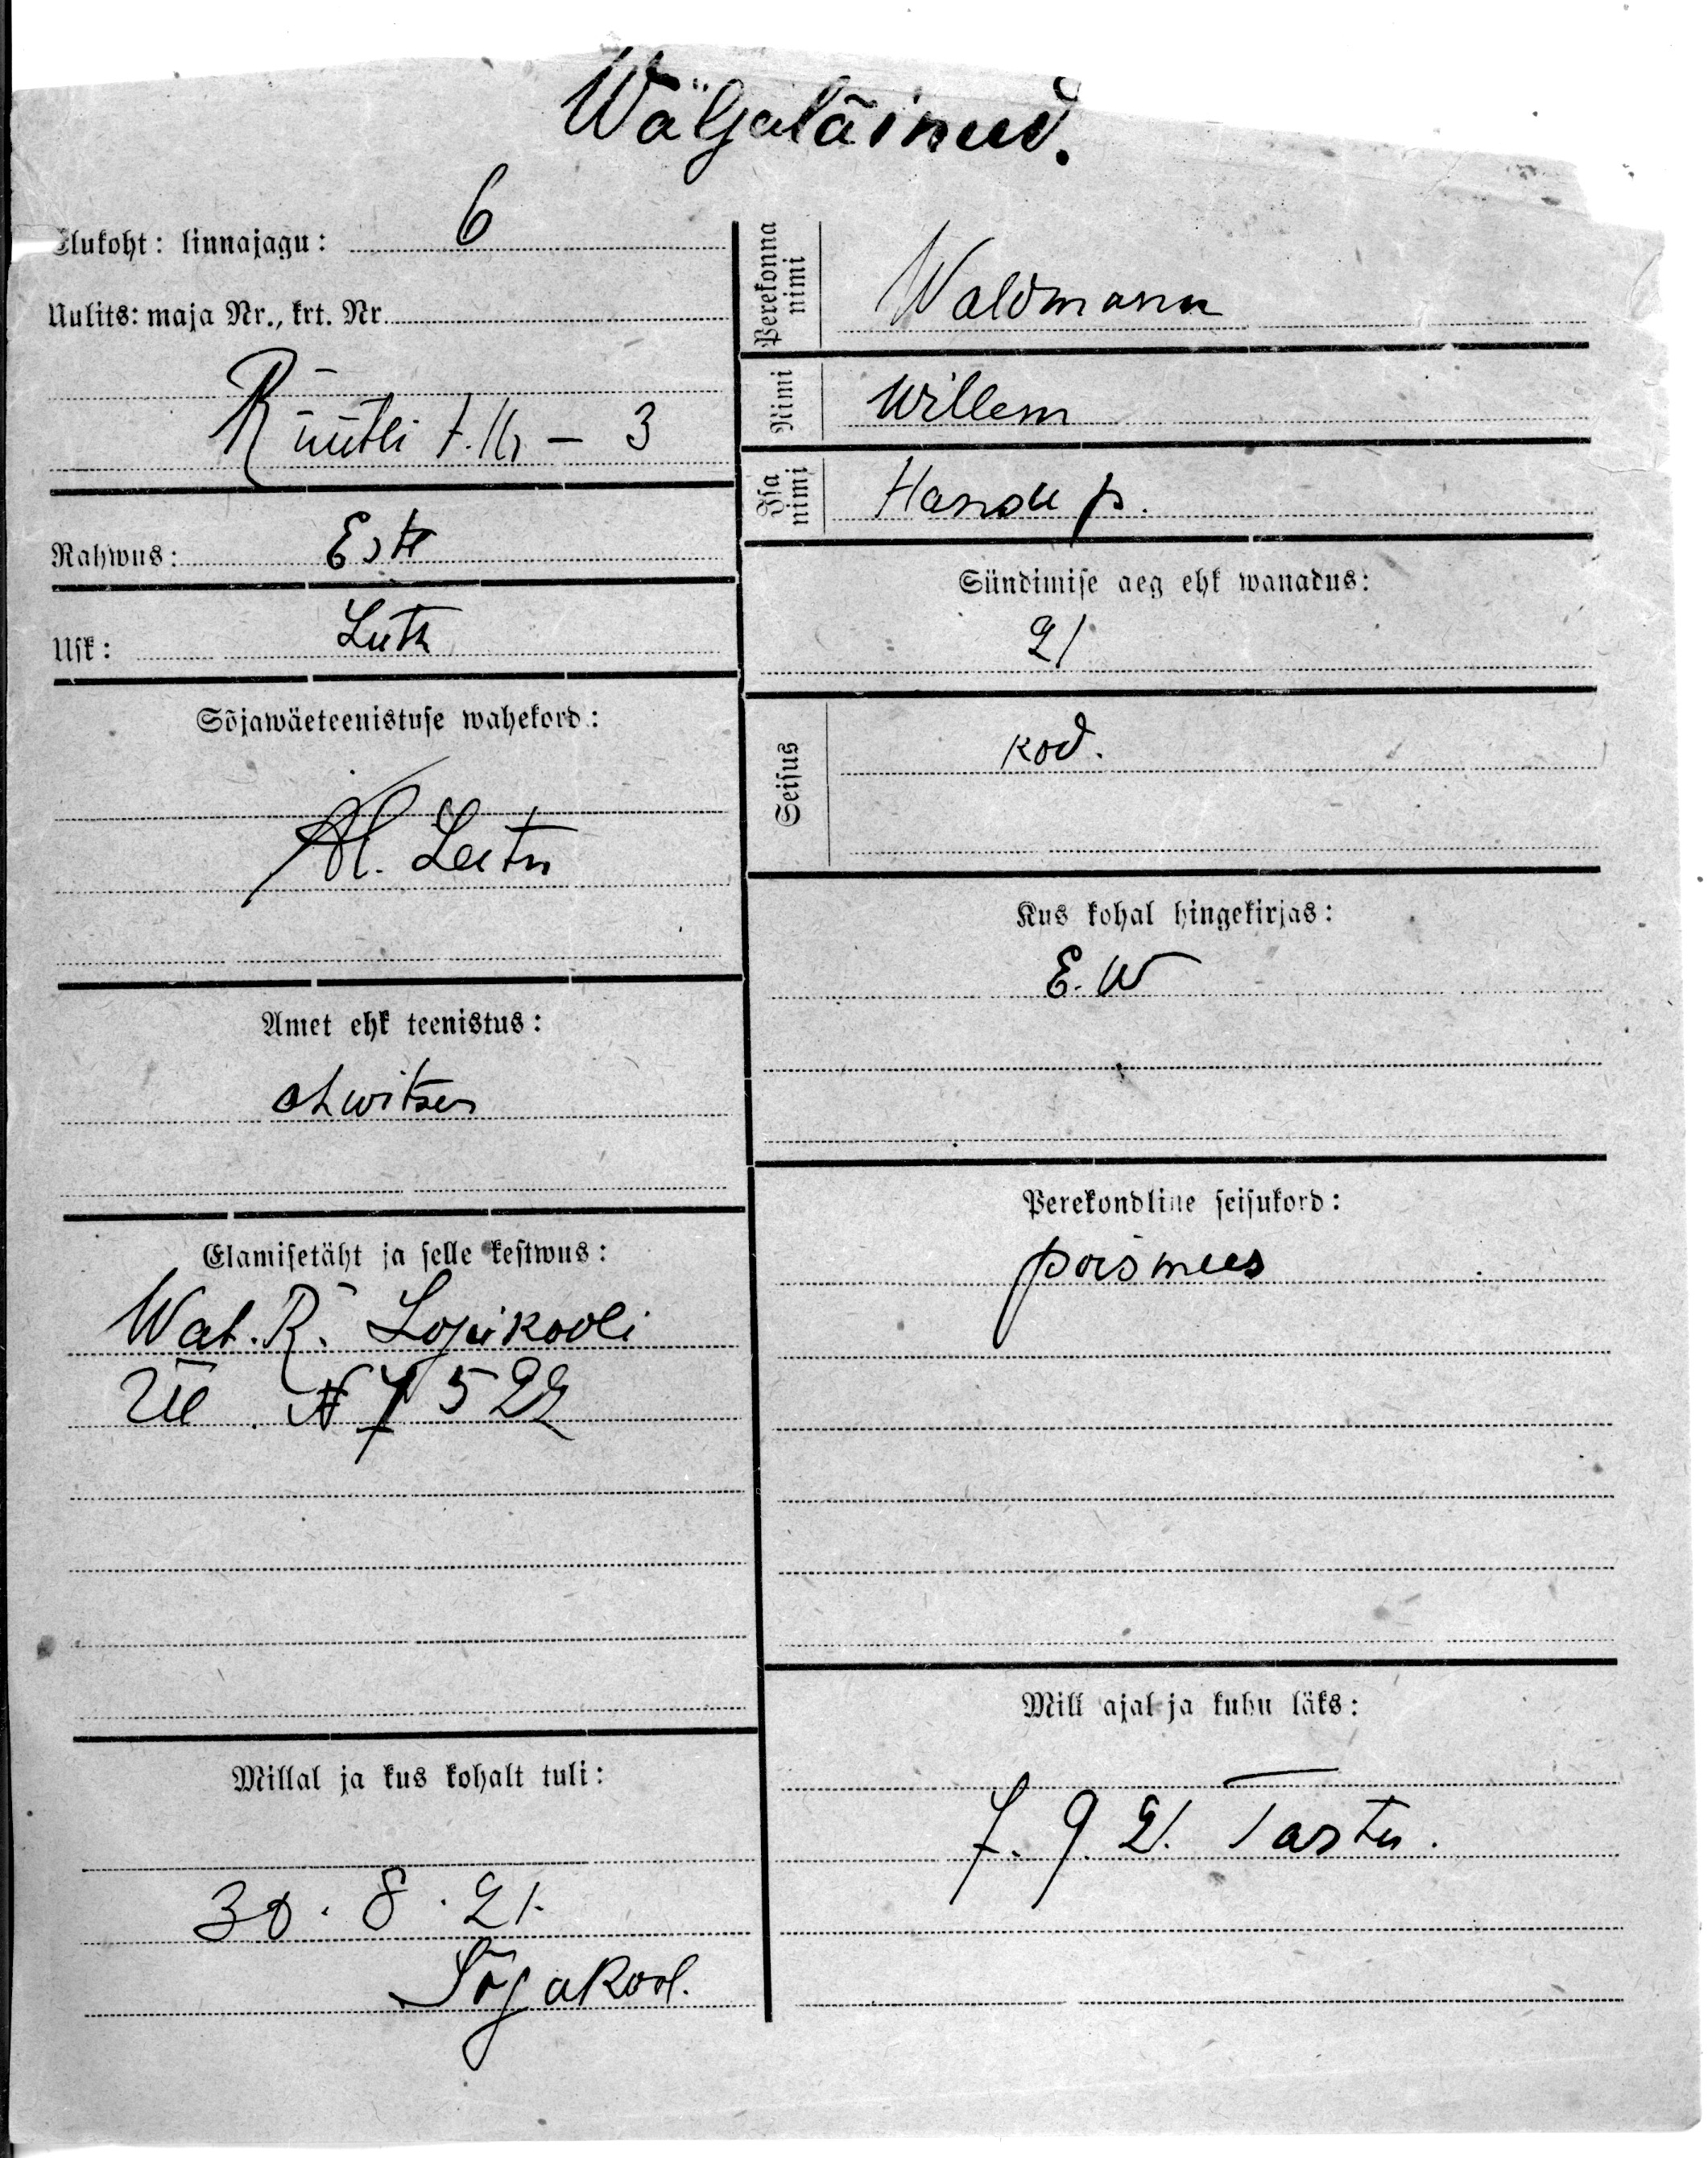 Wäljaläinud.
Elukoht: linnajagu: 6
Uulits: maja Nr., krt. Nr.
Rüütli 7. Kr – 3
Rahwus: Est
Usk: Luth
Sõjawäeteenistuse wahekord:
Al. Leitn
Amet ehk teenistus:
ohwitser
Elamisetäht ja selle kestwus:
Wab. R.
№ 7522
Millal ja kus kohalt tuli:
30. 8. 21.
Sõjakool.
Perekonna nimi
Waldmann
Nimi
Willem
Isa nimi
Hansu p.
Sündimise aeg ehk wanadus:
21
Seisus
kod.
Kus kohal hingekirjas:
E. W
Perekondline seisukord:
poismees
Mill ajal ja kuhu läks:
7. 9 21. Tartu.